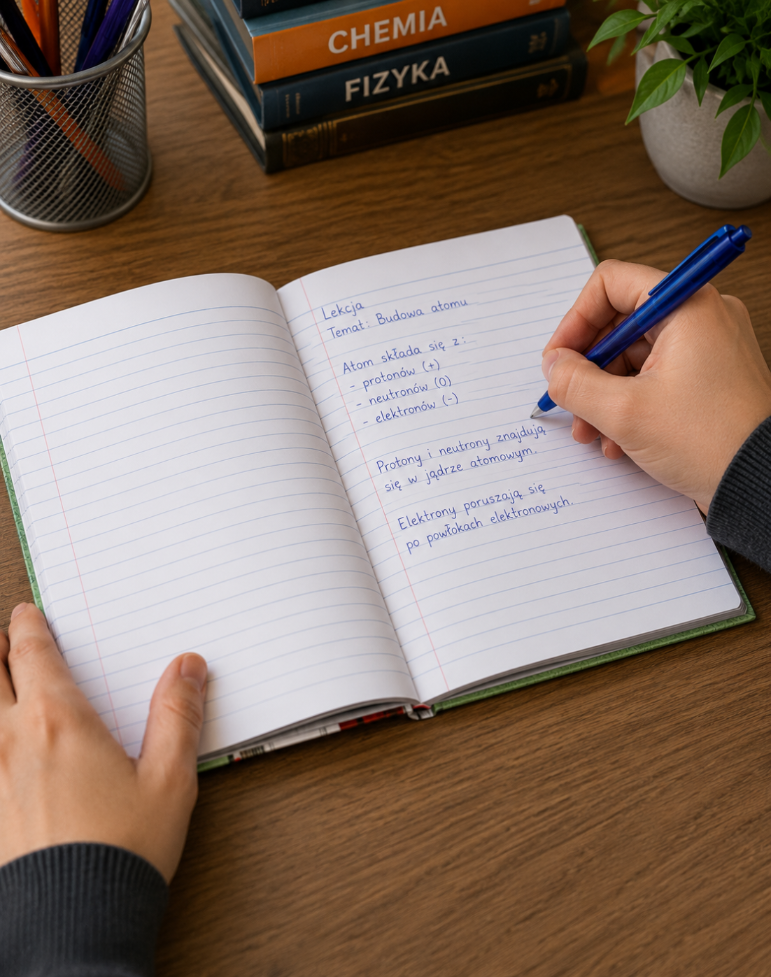 CHEMIA
FIZYKA
Lekcja
Temat: Budowa atomu
Atom składa się z:
- protonów (+)
- neutronów (0)
- elektronów (-)
Protony i neutrony znajdują
się w jądrze atomowym.
Elektrony poruszają się
po powłokach elektronowych.